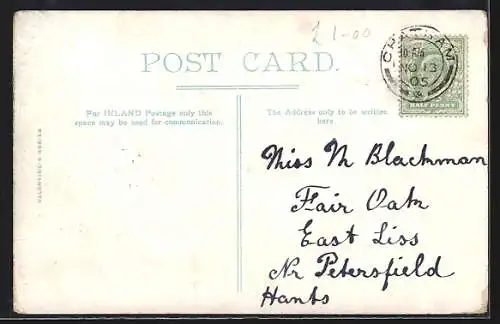 £1-00
POST CARD.
CHATHAM
NO 13
05
HALF PENNY
For INLAND Postage only this
space may be used for communication.
The Address only to be written
here.
VALENTINE'S SERIES
Miss M Blackman
Fair Oak
East Liss
Nr Petersfield
Hants